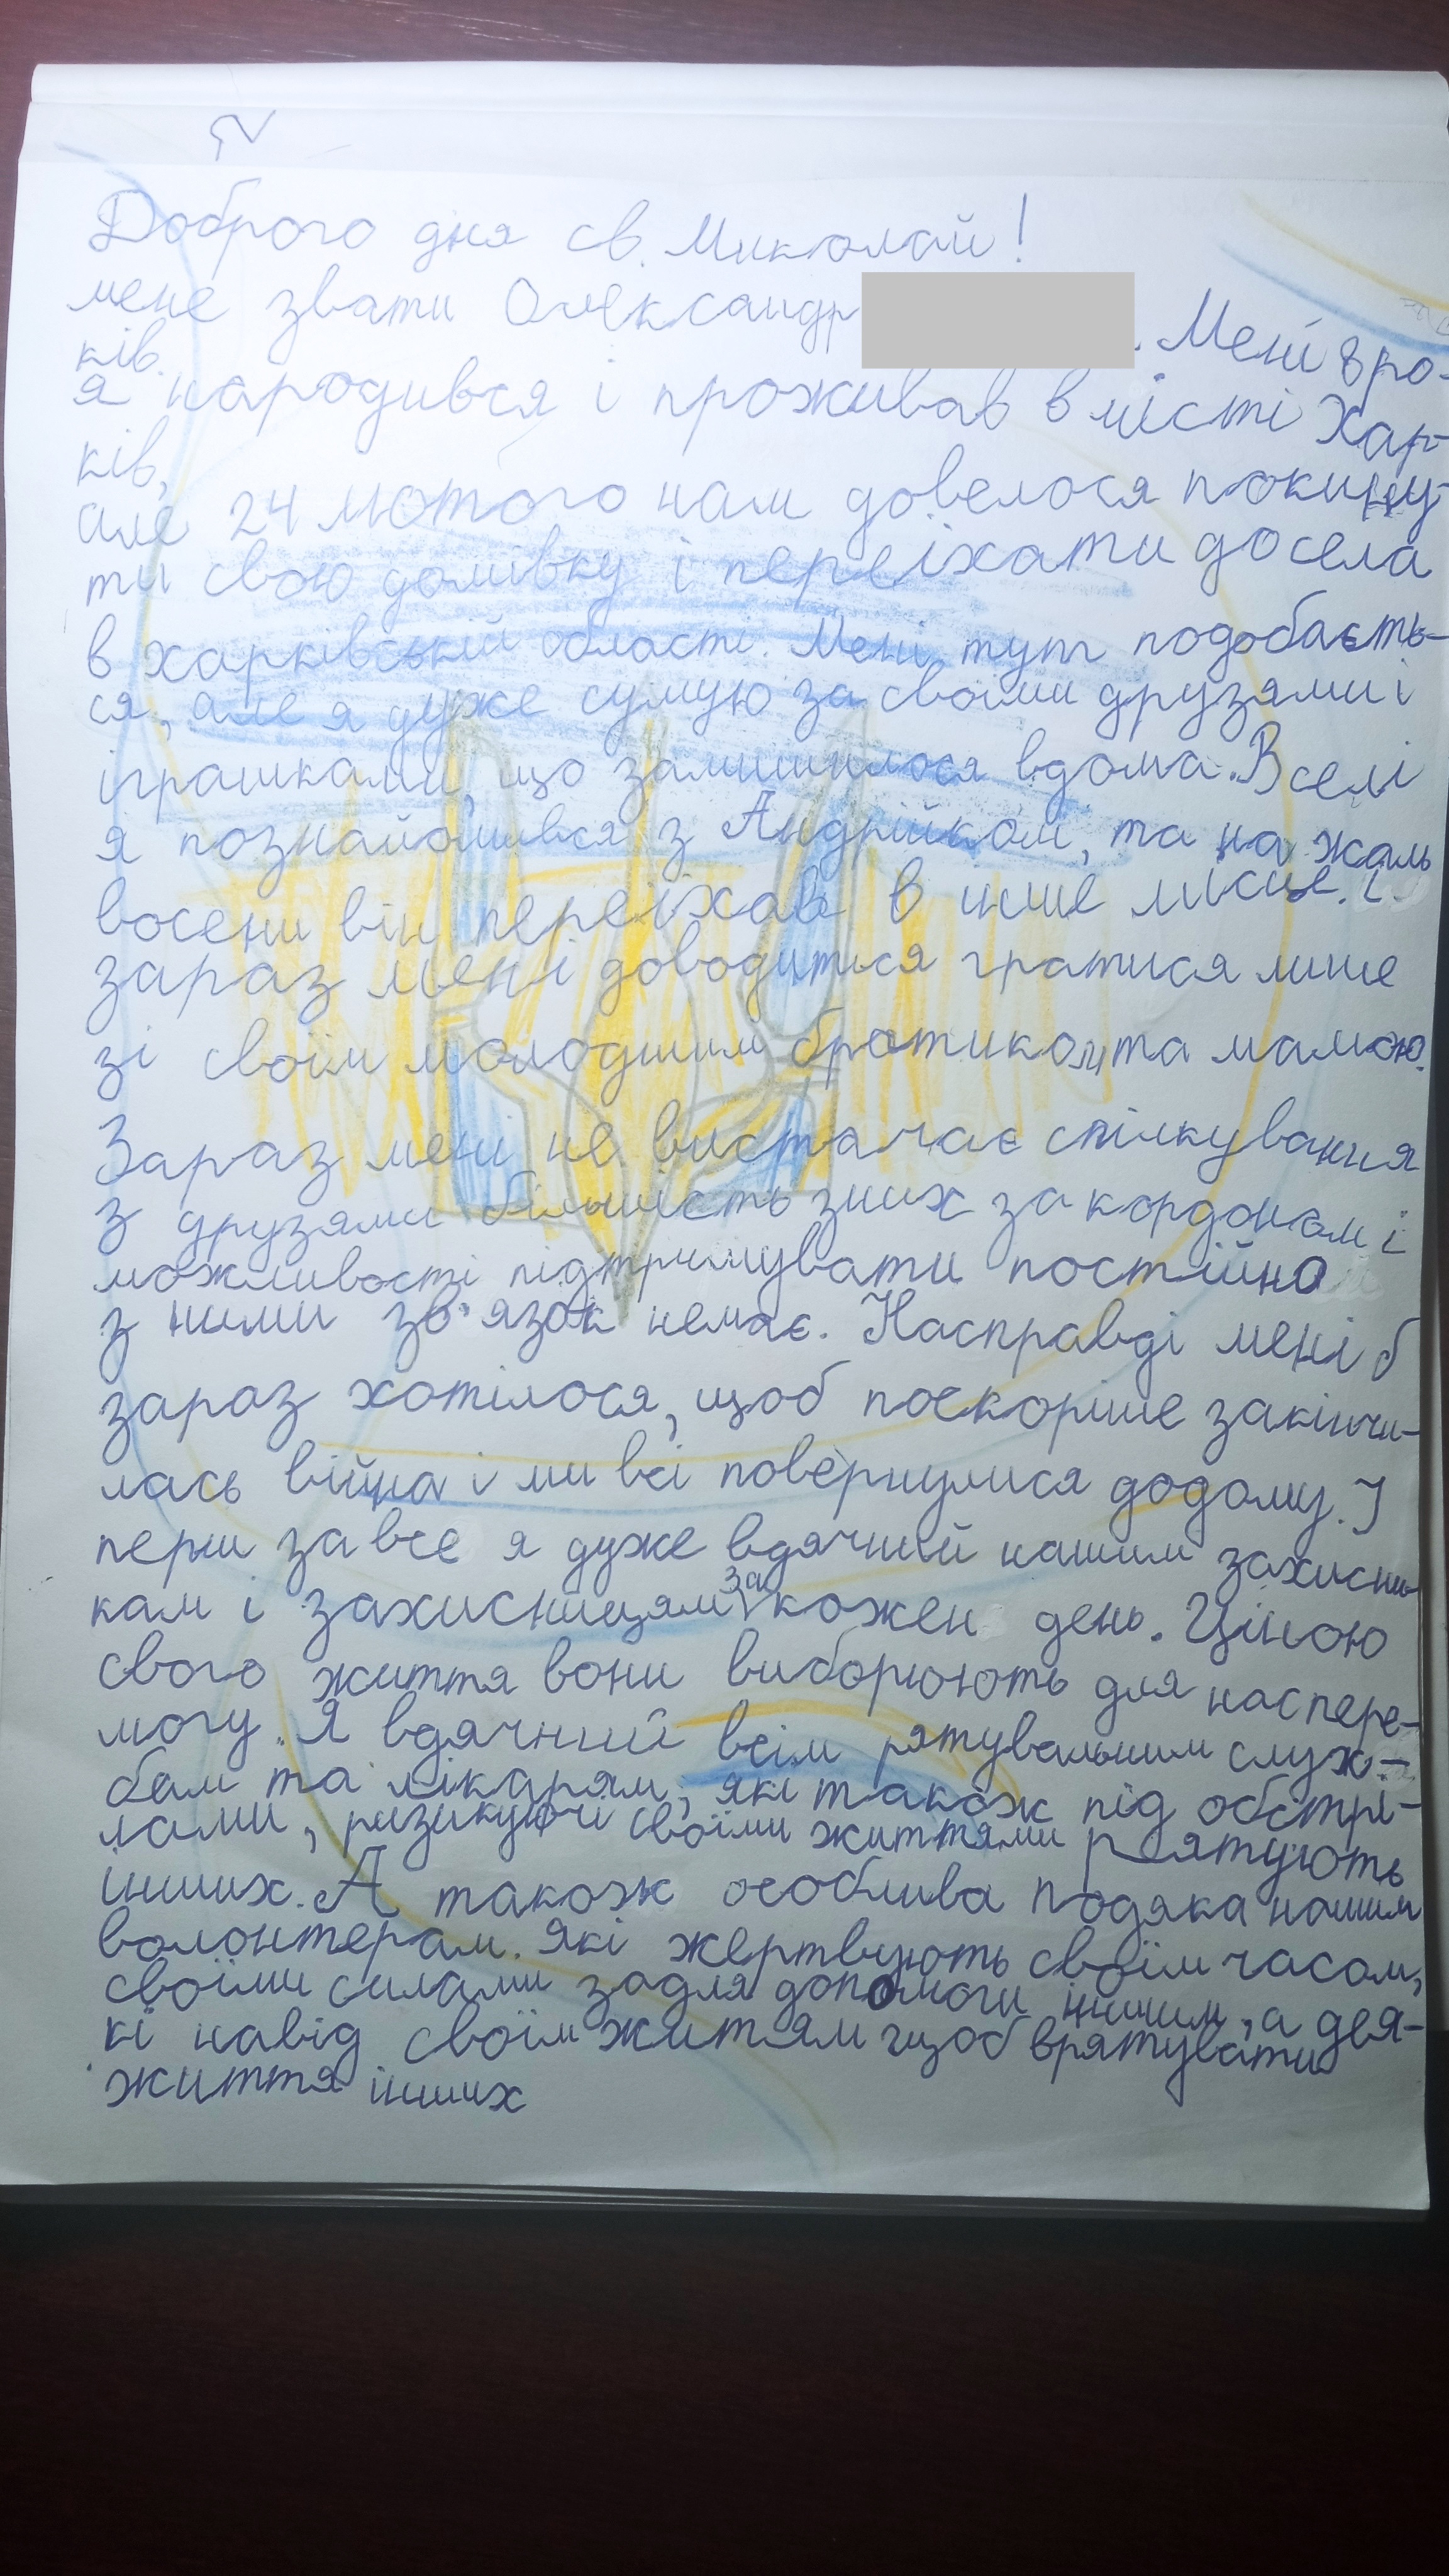 Доброго дня св. Миколай!
мене звати Олександр . Мені 8 ро-
ків.
я народився і проживав в місті Хар-
ків,
але 24 лютого нам довелося покину-
ти свою домівку і переїхати до села
в харківській області. Мені тут подобаєть-
ся, але я дуже сумую за своїми друзями і
іграшками, що залишилося вдома. В селі
я познайомився з Андрійком, та на жаль
восени він переїхав в інше місце. і
зараз мені доводиться гратися лише
зі своїм молодшим братиком та мамою.
Зараз мені не вистачає спілкування
з друзями більшість з них за кордоном і
можливості підтримувати постійно
з ними зв'язок немає. Насправді мені б
зараз хотілося, щоб поскоріше закінчи-
лась війна і ми всі повернулися додому. І
перш за все я дуже вдячний нашим захисни-
кам і захисницям за кожен день. Ціною
свого життя вони виборюють для нас пере-
могу. Я вдячний всім рятувальним служ-
бам та лікарям, які також під обстрі-
лами, ризикуючи своїми життями рятують
інших. А також особлива подяка нашим
волонтерам. Які жертвують своїм часом,
своїми силами задля допомоги іншим, а дея-
кі навід своїм життям щоб врятувати
життя інших